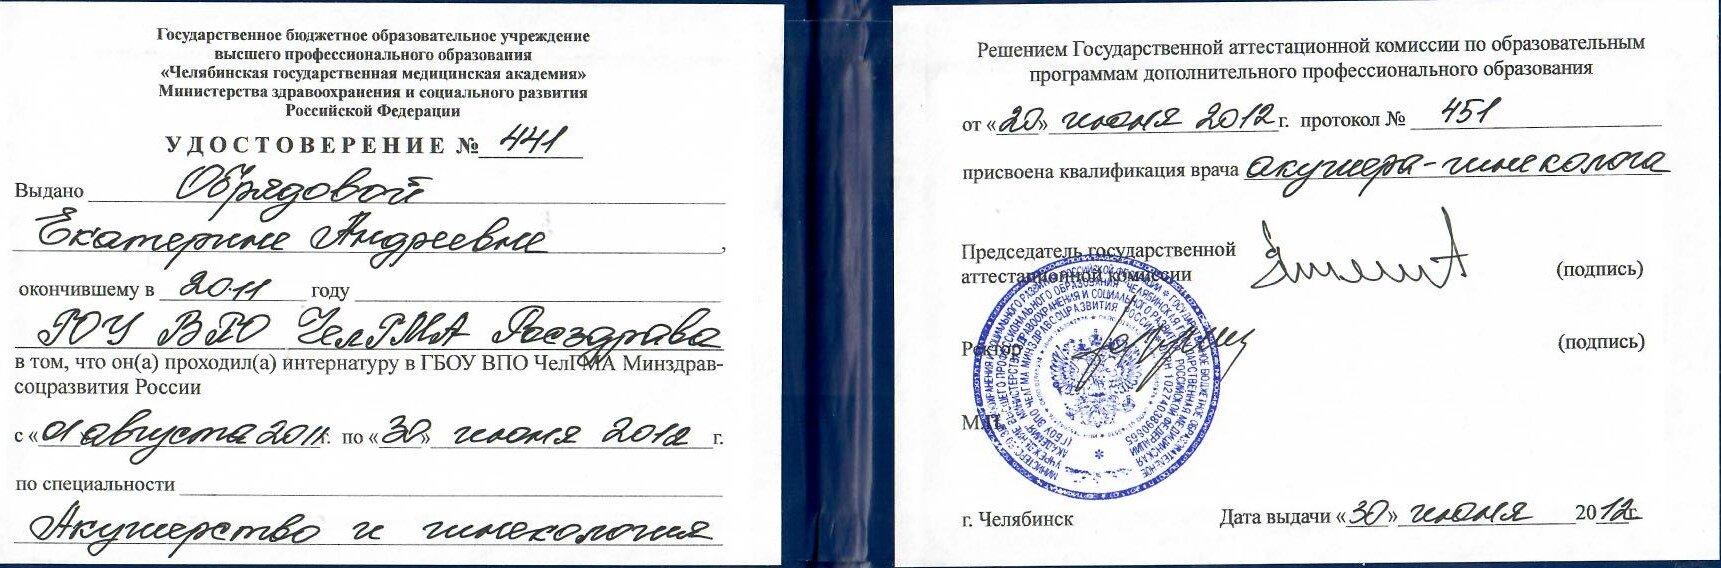 Государственное бюджетное образовательное учреждение
высшего профессионального образования
«Челябинская государственная медицинская академия»
Министерства здравоохранения и социального развития
Российской Федерации
УДОСТОВЕРЕНИЕ № 441
Выдано Обрядовой
Екатерине Андреевне,
окончившему в 2011 году
ГОУ ВПО ЧелГМА Росздрава
в том, что он(а) проходил(а) интернатуру в ГБОУ ВПО ЧелГМА Минздрав-
соцразвития России
с «01 августа 2011г. по «30» июня 2012 г.
по специальности
Акушерство и гинекология
Решением Государственной аттестационной комиссии по образовательным
программам дополнительного профессионального образования
от «20» июня 2012г. протокол № 451
присвоена квалификация врача акушера-гинеколога
Председатель государственной
аттестационной комиссии (подпись)
Ректор (подпись)
М.П.
г. Челябинск Дата выдачи «30» июня 2012г.